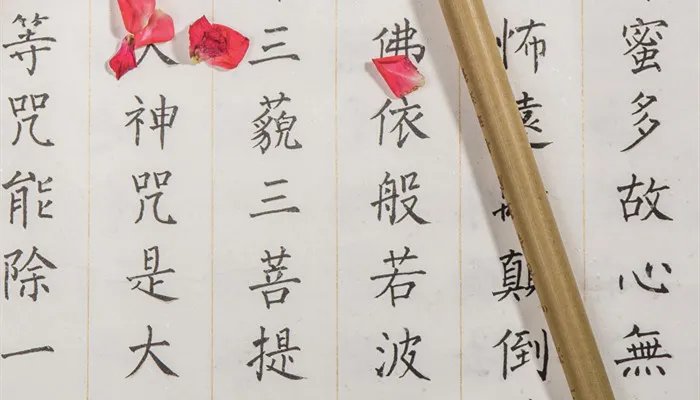 蜜多故心無
怖遠顛倒
佛依般若波
三藐三菩提
大神咒是大
等咒能除一